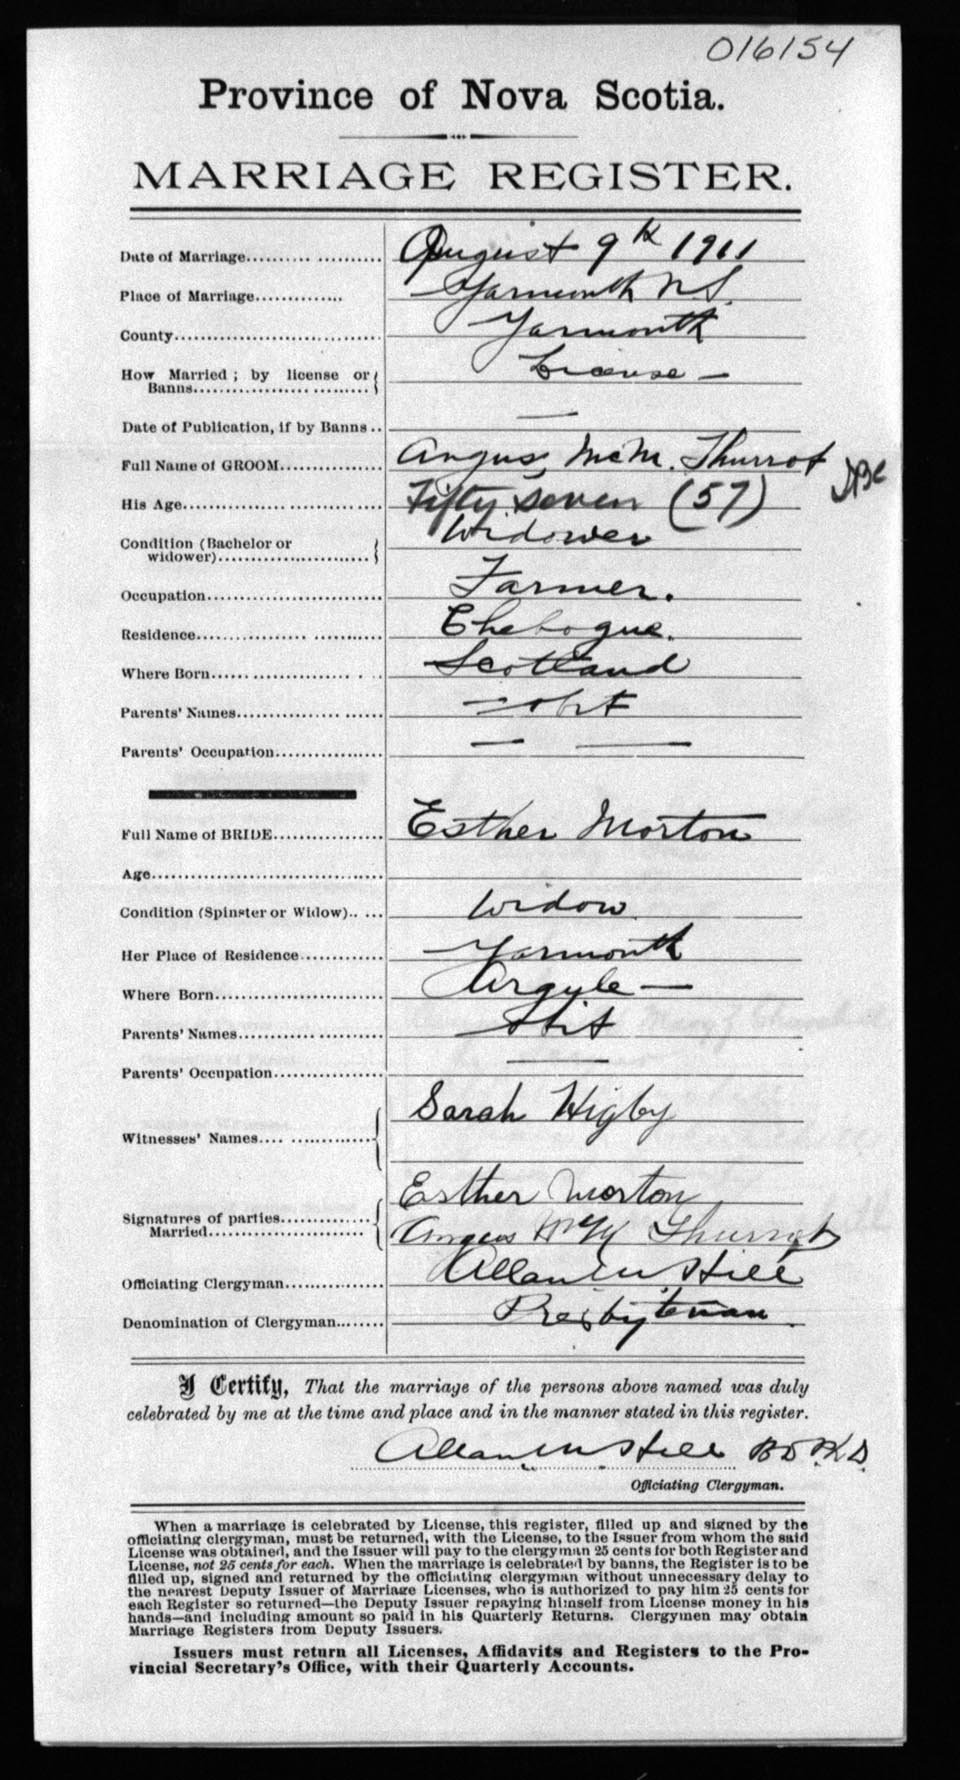 016154
Province of Nova Scotia.
MARRIAGE REGISTER.
Date of Marriage August 9th 1911
Place of Marriage Yarmouth N.S.
County Yarmouth
How Married; by license or Banns License —
Date of Publication, if by Banns —
Full Name of GROOM Angus McM. Thurrot
His Age Fifty Seven (57)
Condition (Bachelor or widower) Widower
Occupation Farmer.
Residence Chebogue.
Where Born Scotland
Parents' Names
Parents' Occupation — —
Full Name of BRIDE Esther Morton
Age
Condition (Spinster or Widow) Widow
Her Place of Residence Yarmouth
Where Born Argyle —
Parents' Names
Parents' Occupation —
Witnesses' Names Sarah Higby
Esther Morton
Signatures of parties Married Angus McM Thurrot
Officiating Clergyman Allan M. Hill
Denomination of Clergyman Presbyterian.
I Certify, That the marriage of the persons above named was duly
celebrated by me at the time and place and in the manner stated in this register.
Allan M. Hill
Officiating Clergyman.
When a marriage is celebrated by License, this register, filled up and signed by the
officiating clergyman, must be returned, with the License, to the Issuer from whom the said
License was obtained, and the Issuer will pay to the clergyman 25 cents for both Register and
License, not 25 cents for each. When the marriage is celebrated by banns, the Register is to be
filled up, signed and returned by the officiating clergyman without unnecessary delay to
the nearest Deputy Issuer of Marriage Licenses, who is authorized to pay him 25 cents for
each Register so returned—the Deputy Issuer repaying himself from License money in his
hands—and including amount so paid in his Quarterly Returns. Clergymen may obtain
Marriage Registers from Deputy Issuers.
Issuers must return all Licenses, Affidavits and Registers to the Pro-
vincial Secretary's Office, with their Quarterly Accounts.